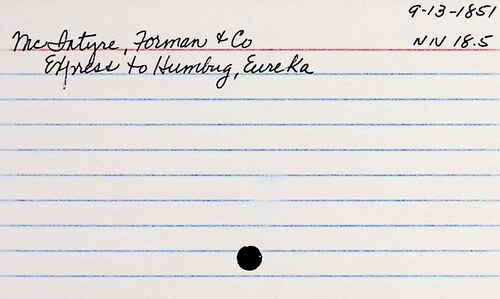 9-13-1851
McIntyre, Forman & Co
NN 18.5
Express to Humbug, Eureka